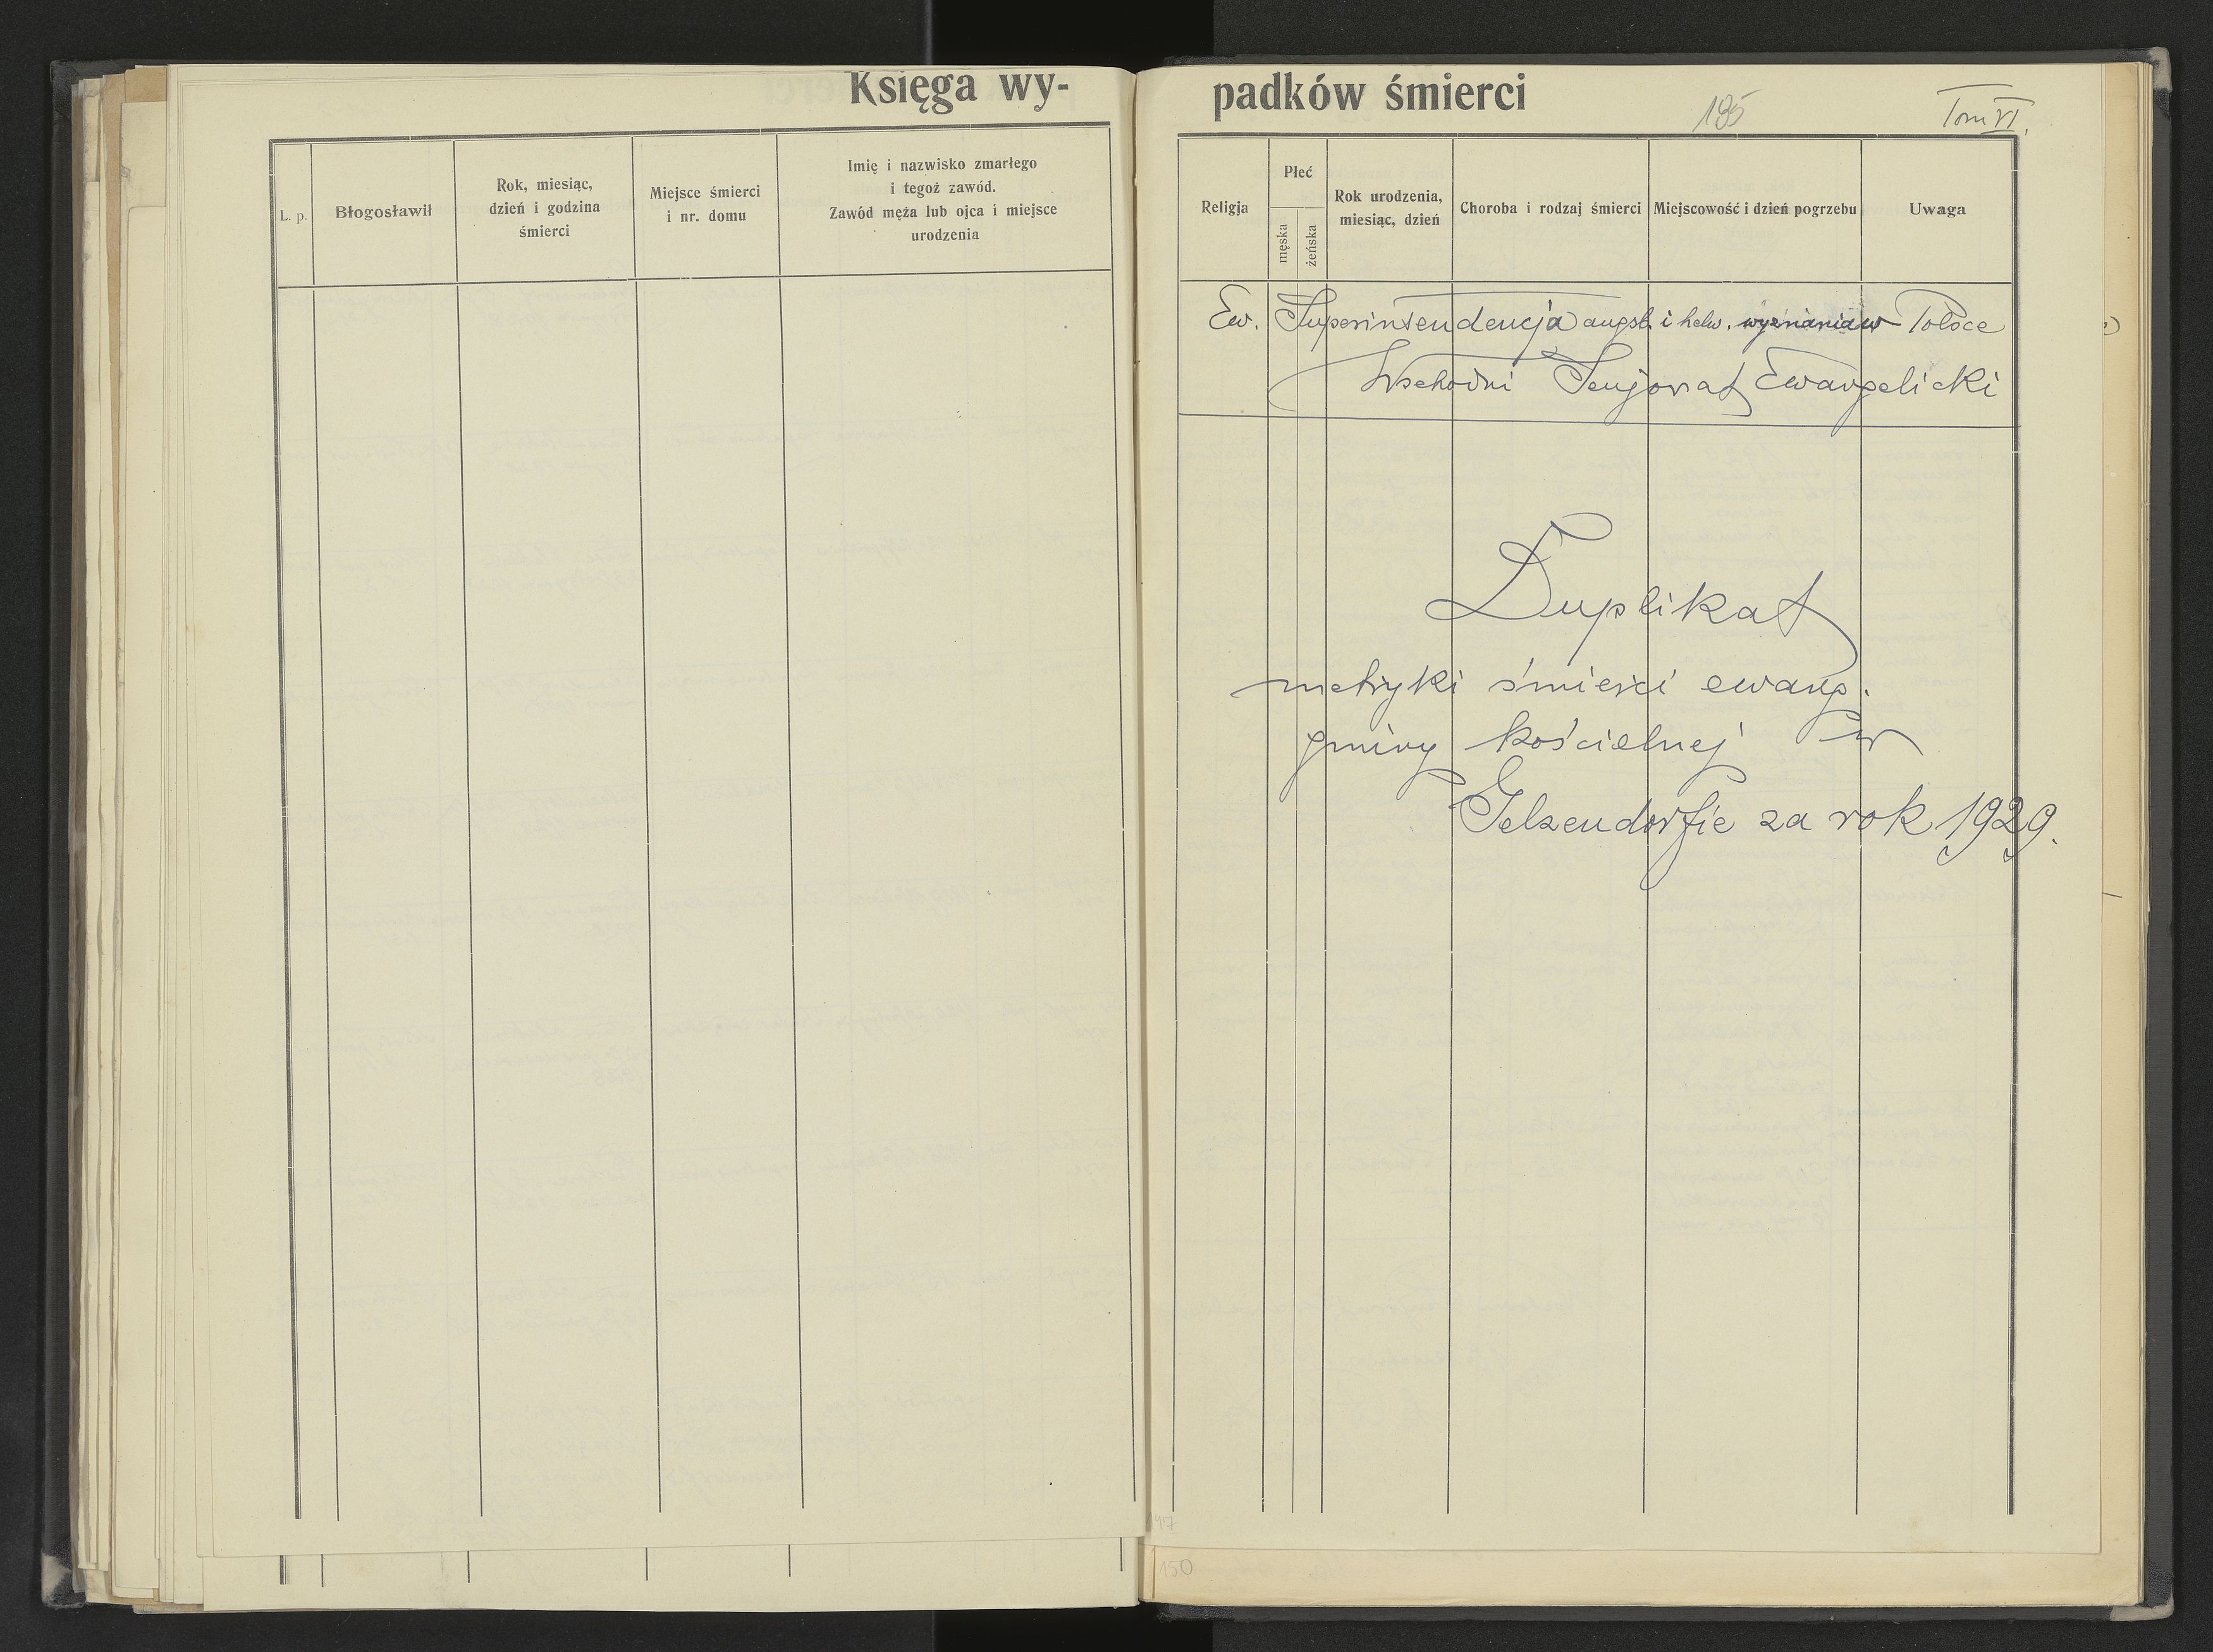 Księga wy-
padków śmierci
195
Tom VI.
L. p.
Błogosławił
Rok, miesiąc,
dzień i godzina
śmierci
Miejsce śmierci
i nr. domu
Imię i nazwisko zmarłego
i tegoż zawód.
Zawód męża lub ojca i miejsce
urodzenia
Religja
Płeć
męska
żeńska
Rok urodzenia,
miesiąc, dzień
Choroba i rodzaj śmierci
Miejscowość i dzień pogrzebu
Uwaga
Ew. Superintendencja augsb. i helw. wyznania w Polsce
Wschodni Senjorat Ewangelicki
Duplikat
metryki śmierci ewang.
gminy kościelnej w
Gelsendorfie za rok 1929.
150